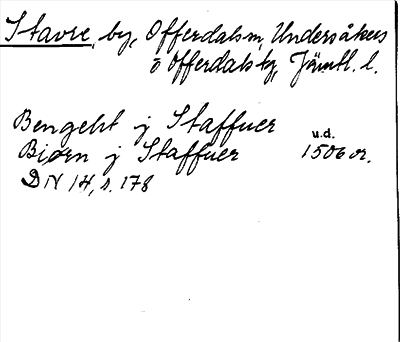 Stavre, by, Offerdalsm, Undersåkers
o Offerdals tg, Jämtl. l.
Bengeht j Staffuer
Biørn j Staffuer u.d. 1506 or.
DN 14, s. 178